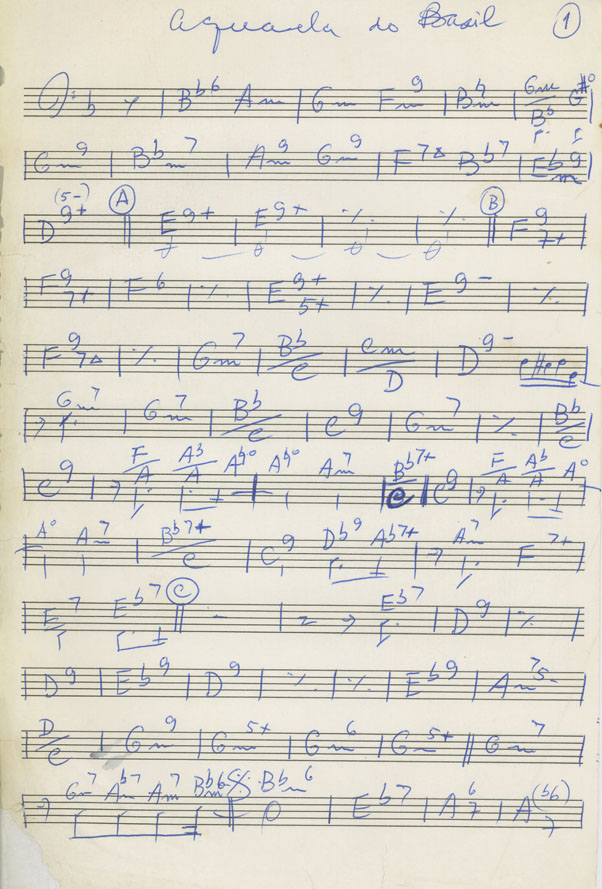 Aquarela do Brasil 1
Bb6 Am Gm Fm9 Bbm Gm/Bb G#o
Gm9 Bbm7 Am9 Gm9 F7Δ Bb7 Ebm9
D9+ (5-) A E9+ E9+ ٪ ٪ B F9 7+
F9 7+ F6 ٪ E9+ 5+ ٪ E9- ٪
F9 7Δ ٪ Gm7 Bb/C Cm/D D9-
Gm7 Gm7 Bb/C C9 Gm7 ٪ Bb/C
C9 F/A Ab/A Abo Abo Am7 Bb7+/C C9 F/A Ab/A Ao
Ao Am7 Bb7+/C C9 Db9 Ab7+ Am7 F7+
E7 Eb7 C Eb7 D9 ٪
D9 Eb9 D9 ٪ ٪ Eb9 Am7 5-
D/C Gm9 Gm5+ Gm6 Gm5+ Gm7
Gm7 Am7 Bbm6 Bbm6 Eb7 A6 7 A(b6) 7